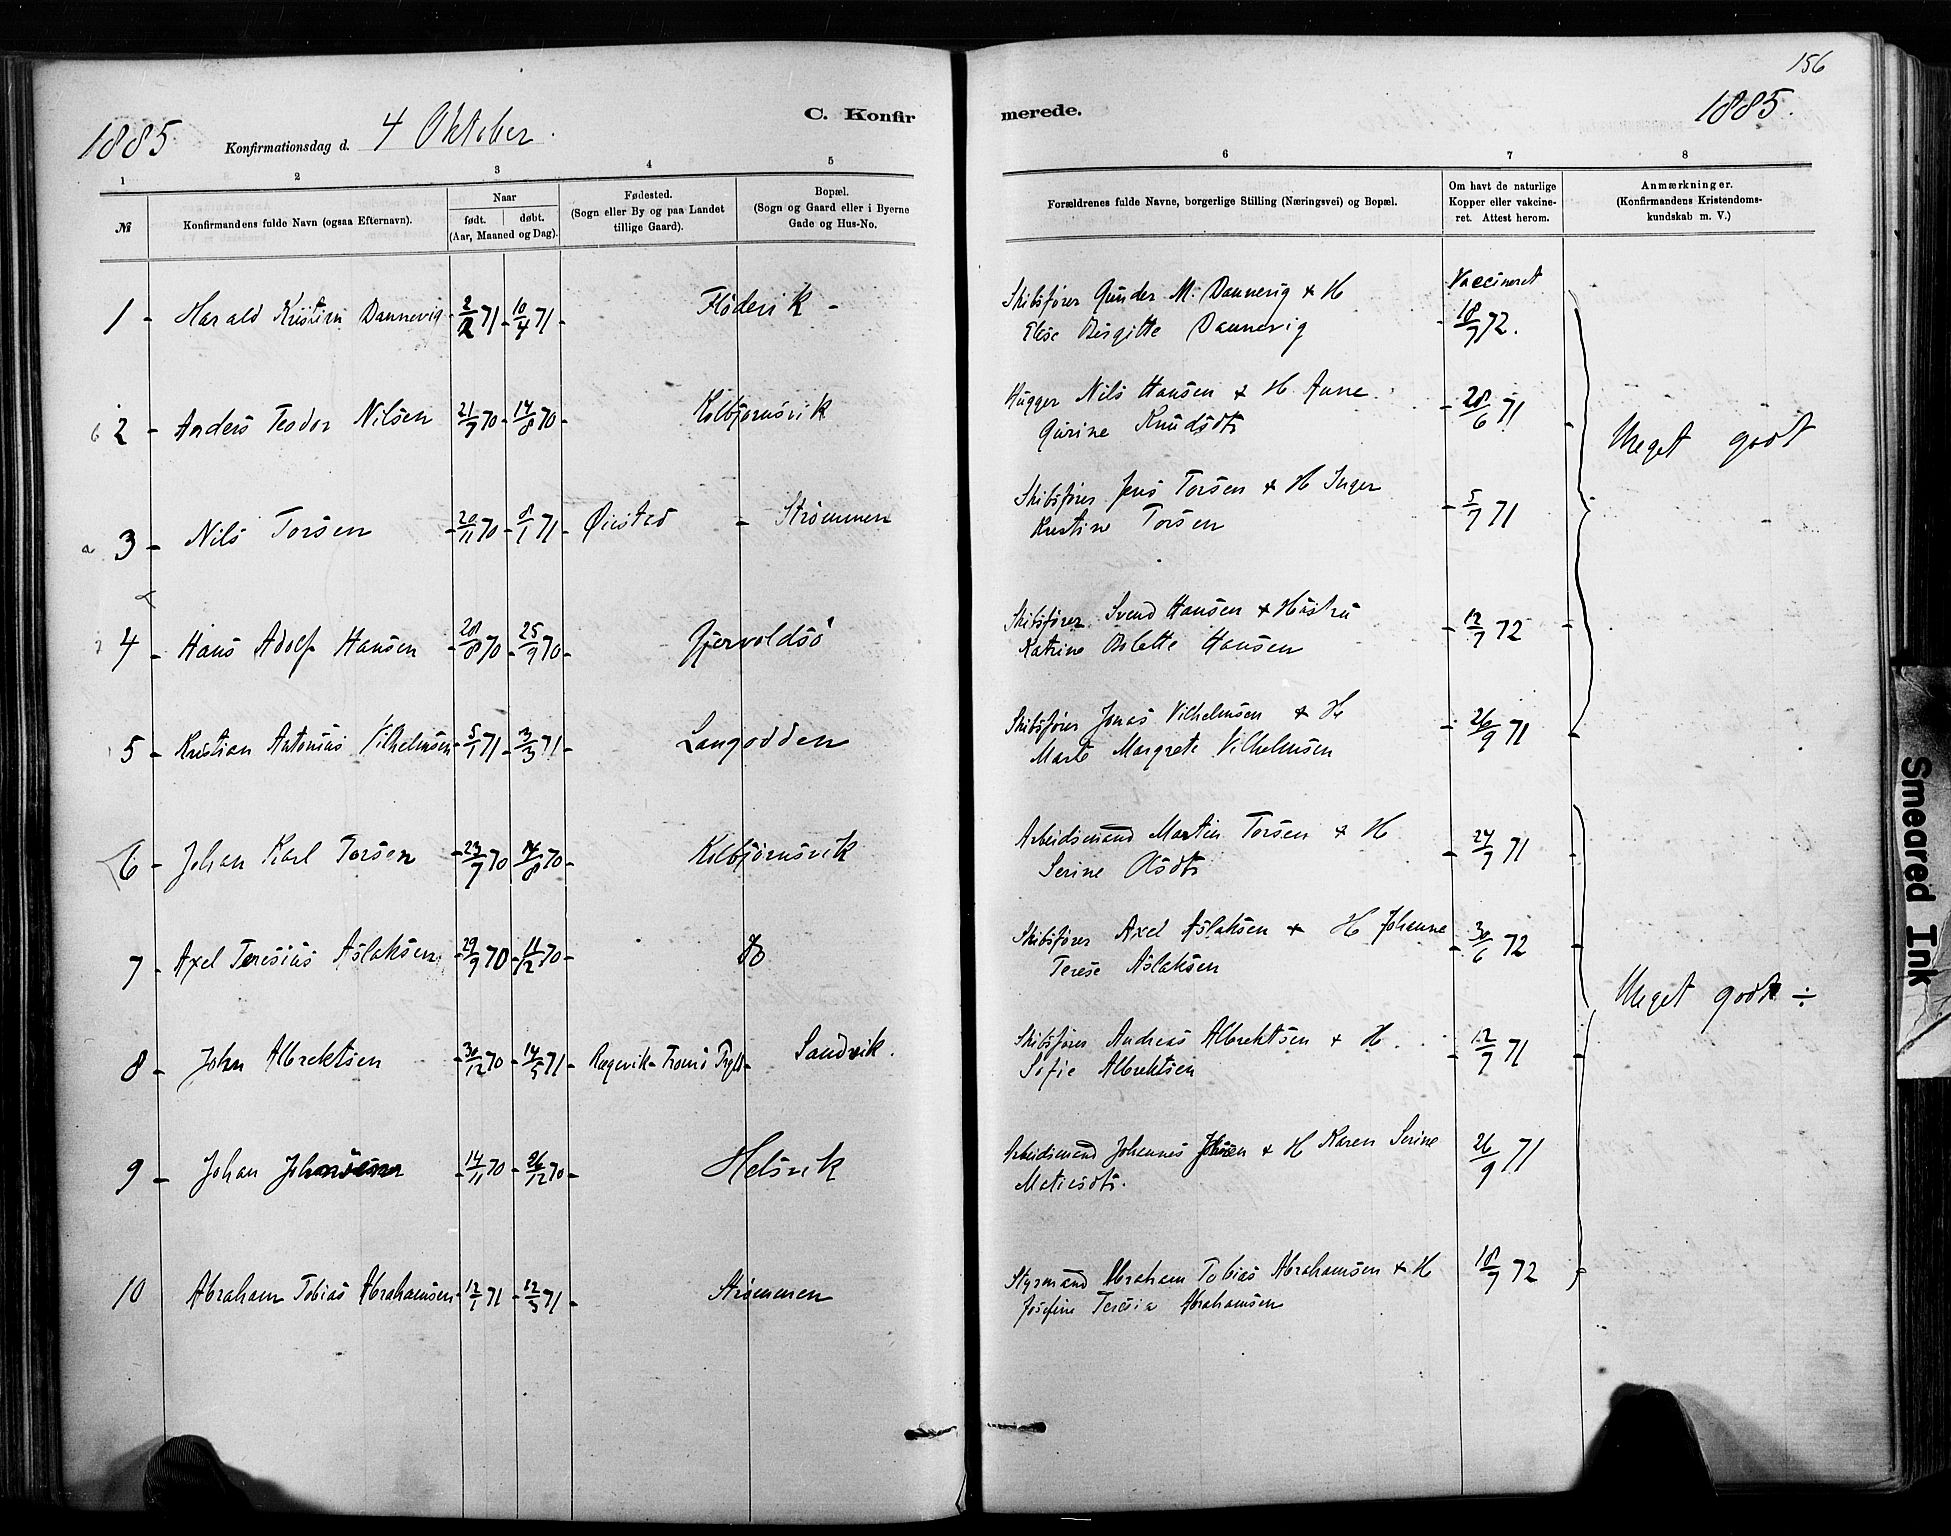 156
1885
Konfirmationsdag d. 4 Oktober.
C. Konfir
merede.
1885.
1 2 3 4 5
6 7 8
№
Konfirmandens fulde Navn (ogsaa Efternavn).
Naar
født. døbt.
(Aar, Maaned og Dag).
Fødested.
(Sogn eller By og paa Landet
tillige Gaard).
Bopæl.
(Sogn og Gaard eller i Byerne
Gade og Hus-No.
Forældrenes fulde Navne, borgerlige Stilling (Næringsvei) og Bopæl.
Om havt de naturlige
Kopper eller vakcine-
ret. Attest herom.
Anmærkninger.
(Konfirmandens Kristendoms-
kundskab m. V.)
1 - Harald Kristian Dannevig - 2/2 71 - 10/4 71 - Flødevik -
Skibsfører Gunder M. Dannevig + H
Elise Birgitte Dannevig
Vaccineret
18/9 72.
2 - Anders Teodor Nilsen 21/7 70 - 14/8 70 - Kolbjørnsvik
Hugger Nils Hansen + H. Anne
Gurine Knudsdtr
28/6 71
Meget godt
3 - Nils Torsen - 20/11 70 - 8/1 71 - Øiestad - Strømmen
Skibsfører Jens Torsen + H Inger
Kristine Torsen
5/7 71
4 - Hans Adolf Hansen 28/8 70 - 25/9 70 - Gjervoldsø
Skibsfører Svend Hansen + Hustru
Katrine Oslette Hansen
12/7 72
5 - Kristian Antonius Vilhelmsen - 5/1 71 - 3/3 71 - Langodden
Skibsfører Jonas Vilhelmsen + H
Marte Margrete Vilhelmsen
26/9 71
6 - Johan Karl Torsen - 23/7 70 - 14/8 70 - Kolbjørnsvik
Arbeidsmand Martin Torsen + H
Serine Olsdtr
24/7 71
7 - Axel Teresius Aslaksen - 29/9 70 - 11/12 70 - Do
Skibsfører Axel Aslaksen + H Johanne
Terese Aslaksen
30/6 72
Meget godt ÷
8 - John Albrektsen - 30/12 70 - 14/5 71 - Tromø Sandvik.
Skibsfører Andreas Albrektsen + H.
Sofie Albrektsen
12/7 71
9 - Johan Johnsen - 14/11 70 - 26/12 70 - Helsvik
Arbeidsmand Johannes Johnsen + H Karen Serine
Matiesdtr.
26/9 71
10 Abraham Tobias Abrahamsen - 12/1 71 - 12/3 71 - Strømmen
Styrmand Abraham Tobias Abrahamsen + H
Josefine Teresia Abrahamsen
18/7 72
Smeared Ink